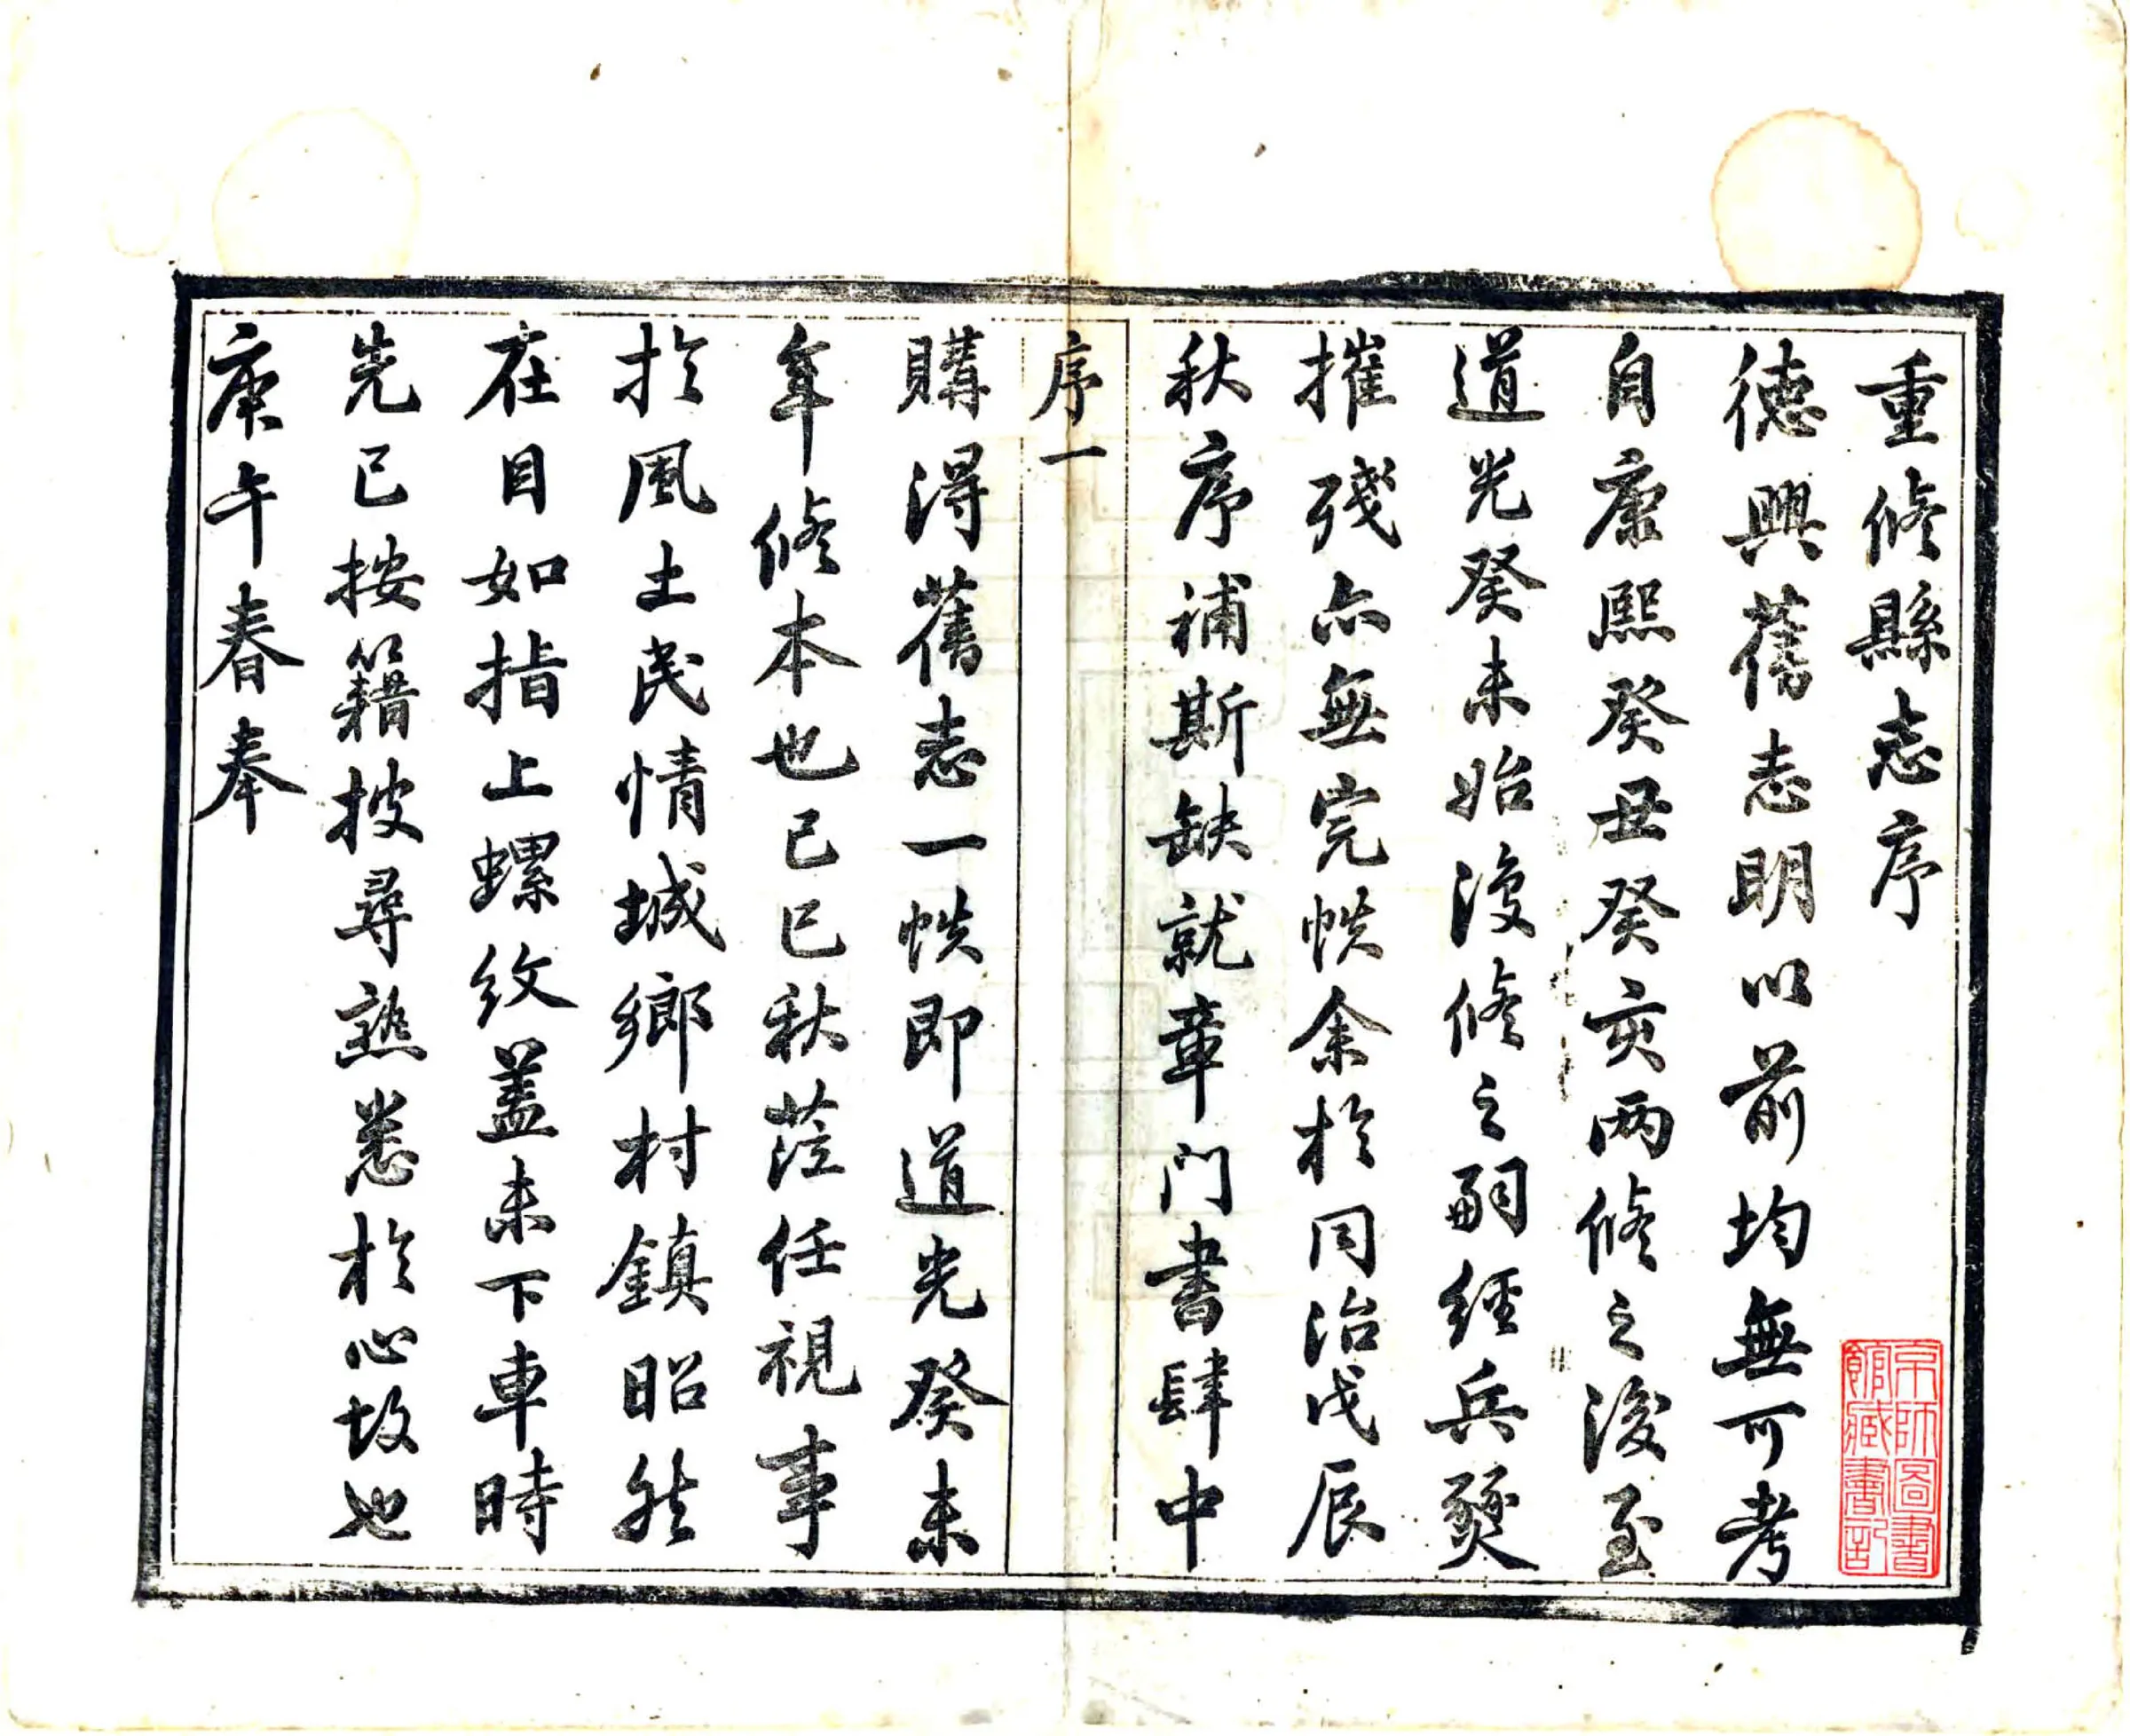 重修縣志序
德興舊志明以前均無可考
自康熙癸丑癸亥兩修之後至
道光癸未始復修之嗣經兵燹
摧殘亦無完帙余於同治戊辰
秋序補斯缺就章门書肆中
序一
購得舊志一帙即道光癸未
年修本也己巳秋蒞任視事
於風土民情城鄉村鎮昭然
在目如指上螺紋蓋未下車時
先已按籍披尋熟悉於心故也
庚午春奉
京師圖書
館藏書記